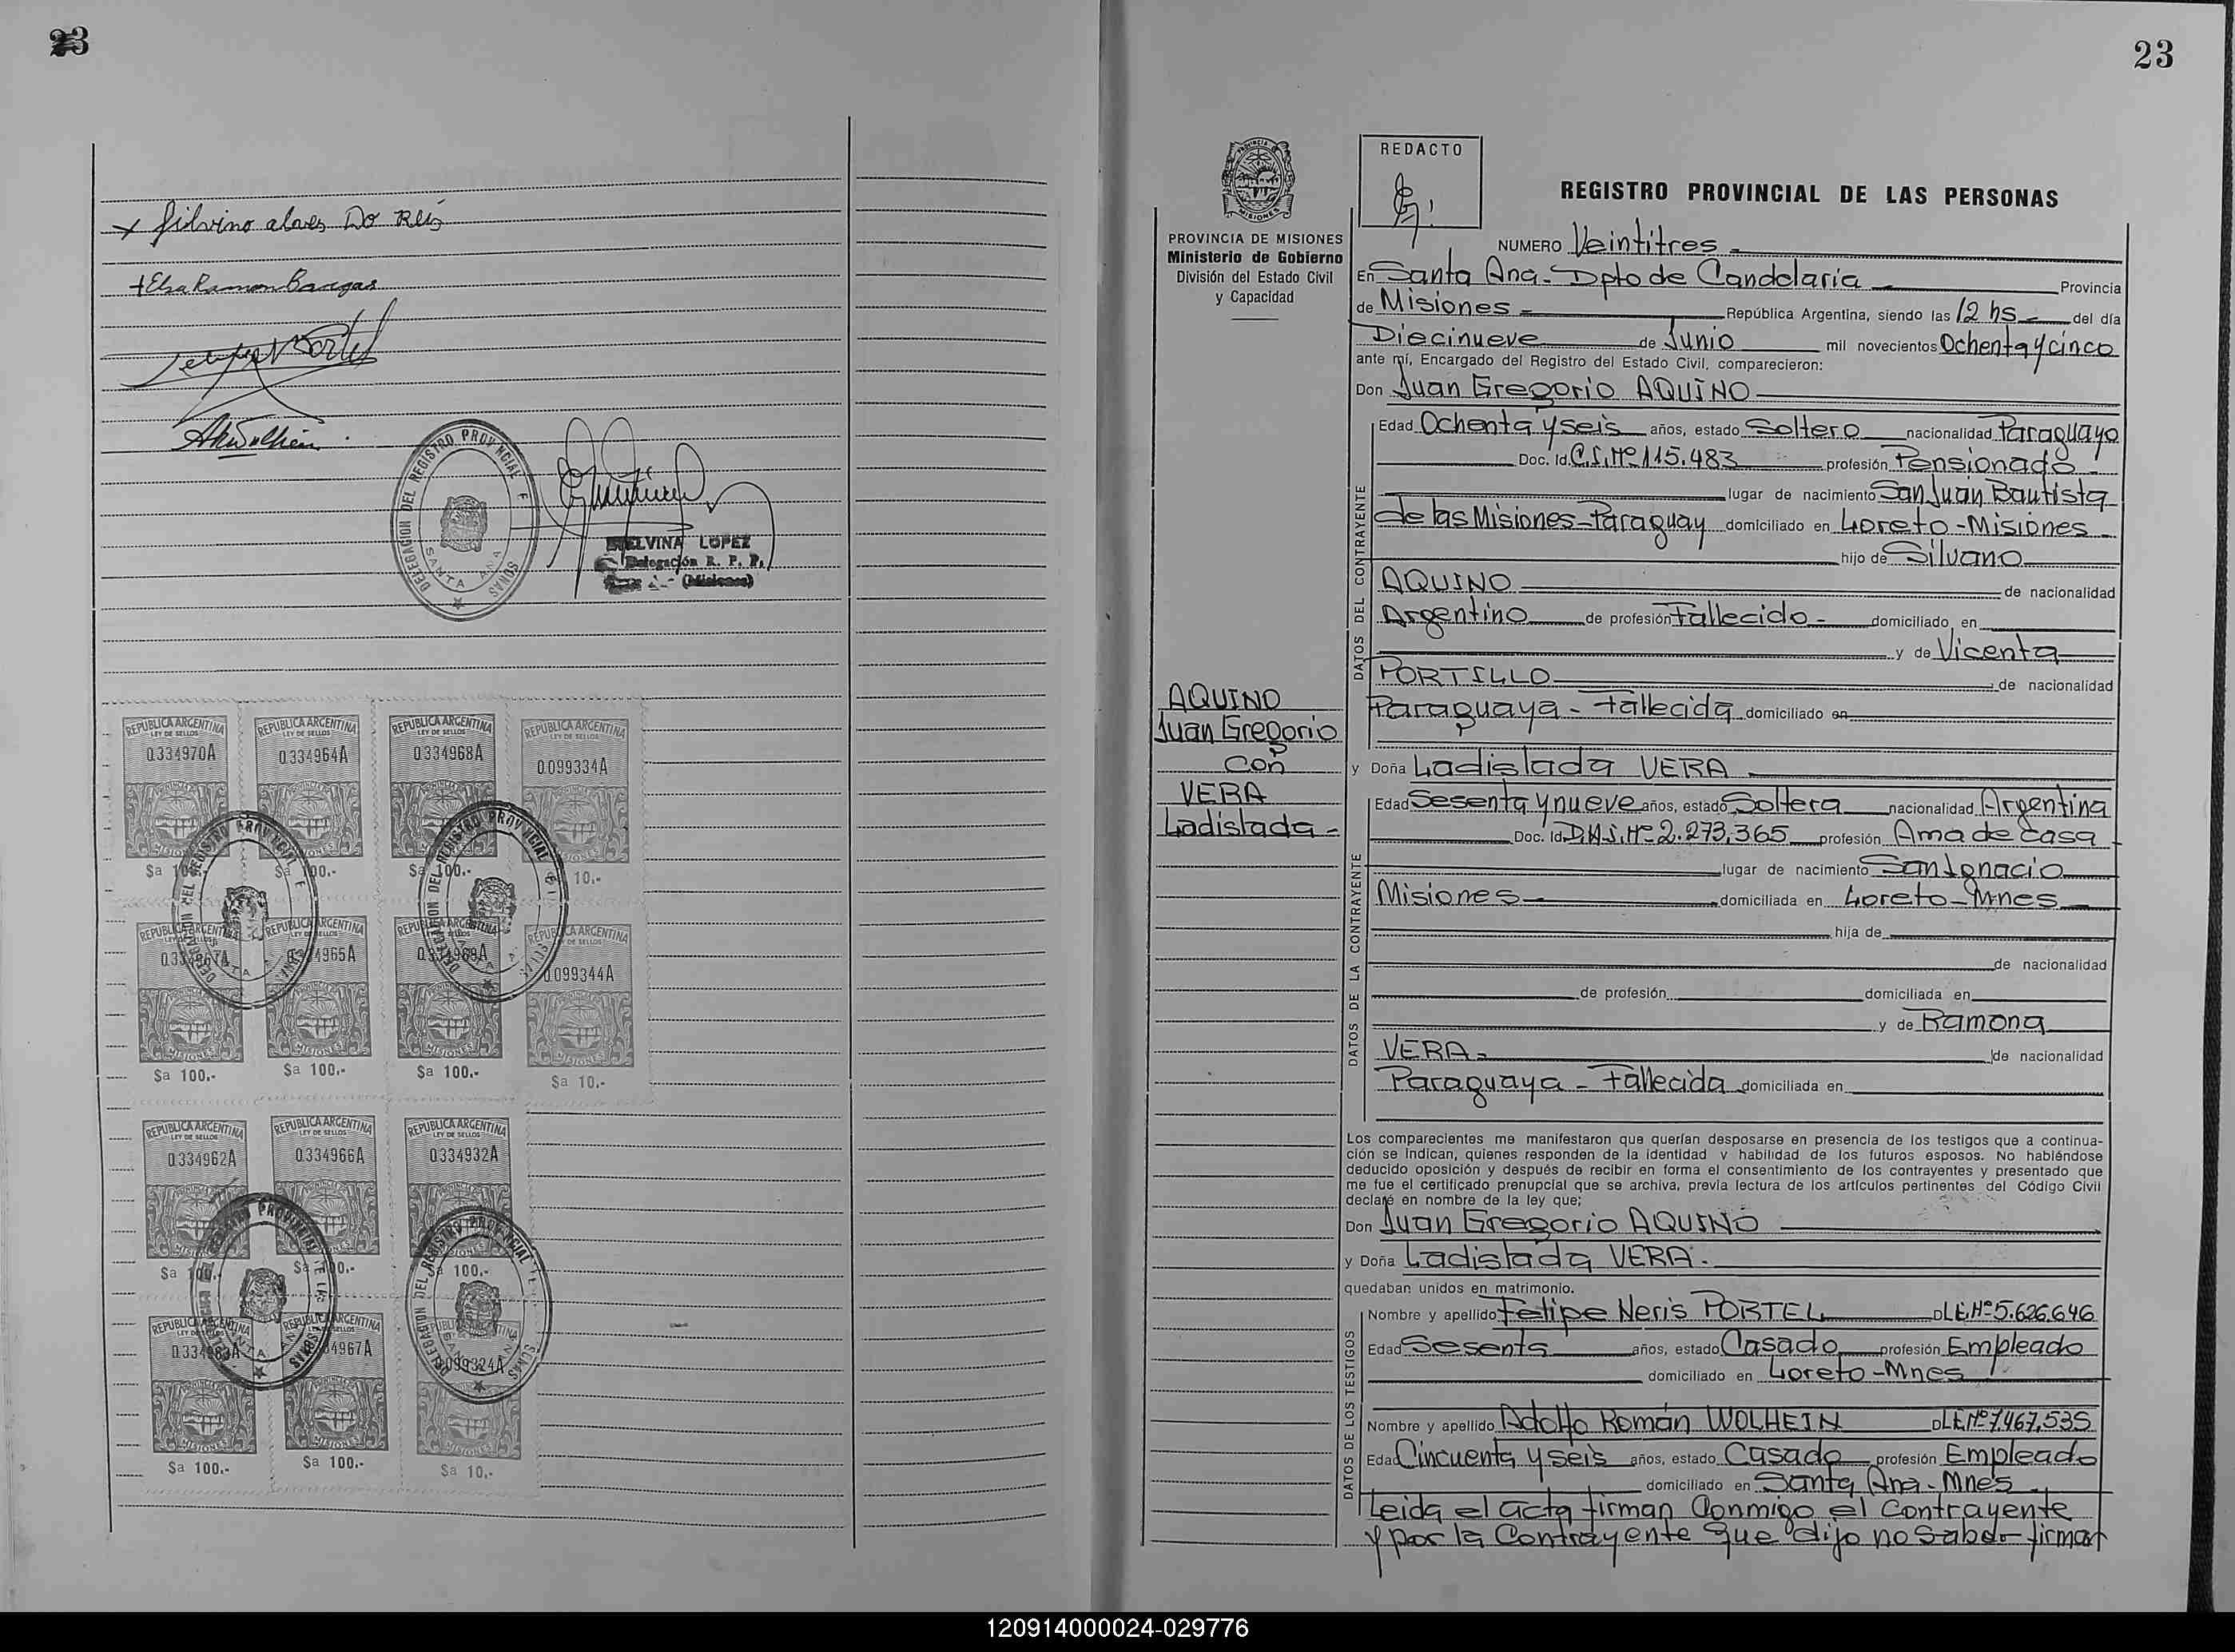 23
x Silvino alves Do Reis
+ Elsa Ramon Bargas
DELEGACION DEL REGISTRO PROVINCIAL
SANTA ANA
ELVINA LOPEZ
Delegación R. P. P.
(Misiones)
REPUBLICA ARGENTINA REPUBLICA ARGENTINA REPUBLICA ARGENTINA REPUBLICA ARGENTINA
LEY DE SELLOS LEY DE SELLOS LEY DE SELLOS LEY DE SELLOS
0334970A 0334964A 0334968A 0099334A
MISIONES MISIONES MISIONES MISIONES
$a 100.- $a 100.- $a 100.- 10.-
REPUBLICA ARGENTINA REPUBLICA ARGENTINA REPUBLICA ARGENTINA REPUBLICA ARGENTINA
4965A 0334969A 0099344A
MISIONES MISIONES MISIONES MISIONES
$a 100.- $a 100.- $a 100.- $a 10.-
REPUBLICA ARGENTINA REPUBLICA ARGENTINA REPUBLICA ARGENTINA
LEY DE SELLOS LEY DE SELLOS LEY DE SELLOS
0334962A 0334966A 0334932A
$a 100.- $a 100.- 100.-
REPUBLICA ARGENTINA REPUBLICA ARGENTINA
4967A 0099324A
MISIONES MISIONES MISIONES
$a 100.- $a 100.- $a 10.-
23
REDACTO
REGISTRO PROVINCIAL DE LAS PERSONAS
PROVINCIA DE MISIONES
Ministerio de Gobierno
División del Estado Civil
y Capacidad
NUMERO Veintitres -
En Santa Ana - Dpto de Candelaria Provincia
de Misiones - República Argentina, siendo las 12 hs - del día
Diecinueve de Junio mil novecientos Ochenta y cinco
ante mí, Encargado del Registro del Estado Civil, comparecieron:
Don Juan Gregorio AQUINO
DATOS DEL CONTRAYENTE
Edad Ochenta y seis años, estado Soltero nacionalidad Paraguayo
Doc. Id. C.I. Nº 115.483 profesión Pensionado -
lugar de nacimiento San Juan Bautista
de las Misiones - Paraguay domiciliado en Loreto - Misiones -
hijo de Silvano
AQUINO de nacionalidad
Argentino de profesión Fallecido - domiciliado en
y de Vicenta
PORTILLO de nacionalidad
Paraguaya - Fallecida domiciliado en
AQUINO
Juan Gregorio
Con
VERA
Ladislada -
y Doña Ladislada VERA -
DATOS DE LA CONTRAYENTE
Edad Sesenta y nueve años, estado Soltera nacionalidad Argentina
Doc. Id. D.N.I. Nº 2.273.365 profesión Ama de casa
lugar de nacimiento San Ignacio
Misiones domiciliada en Loreto - Mnes -
hija de
de nacionalidad
de profesión domiciliada en
y de Ramona
VERA - de nacionalidad
Paraguaya - Fallecida domiciliada en
Los comparecientes me manifestaron que querían desposarse en presencia de los testigos que a continua-
ción se indican, quienes responden de la identidad y habilidad de los futuros esposos. No habiéndose
deducido oposición y después de recibir en forma el consentimiento de los contrayentes y presentado que
me fue el certificado prenupcial que se archiva, previa lectura de los artículos pertinentes del Código Civil
declaré en nombre de la ley que;
Don Juan Gregorio AQUINO
y Doña Ladislada VERA -
quedaban unidos en matrimonio.
DATOS DE LOS TESTIGOS
Nombre y apellido Felipe Neris PORTEL D L.E. Nº 5.626.646
Edad Sesenta años, estado Casado profesión Empleado
domiciliado en Loreto - Mnes
Nombre y apellido Adolfo Román WOLHEIN D L.E. Nº 7.467.535
Edad Cincuenta y seis años, estado Casado profesión Empleado
domiciliado en Santa Ana - Mnes -
Leida el acta firman Conmigo el Contrayente
y por la Contrayente que dijo no saber firmar
120914000024-029776